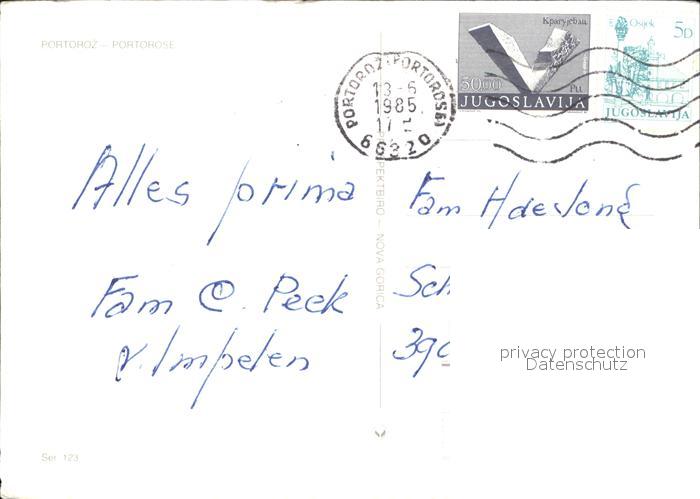 PORTOROŽ — PORTOROSE
Крагујевац
50.00
JUGOSLAVIJA
Osijek 5D
JUGOSLAVIJA
PORTOROŽ-PORTOROSE
13-6
1985
17
66320
Alles prima
Fam C. Peek
v. Impelen
Fam
Sch
390
PROJEKTBIRO — NOVA GORICA
privacy protection
Datenschutz
Ser. 123